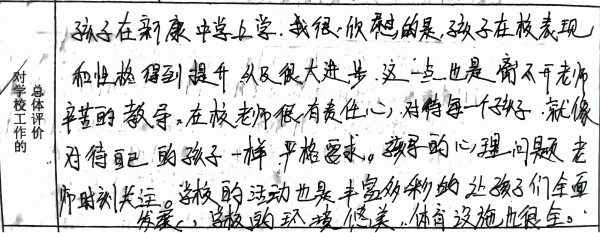 对学校工作的
总体评价
孩子在新康中学上学.我很欣慰的是,孩子在校表现
和性格得到提升以及很大进步.这一点也是离不开老师
辛苦的教导。在校老师很有责任心,对待每一个孩子.就像
对待自己的孩子一样严格要求。孩子的心理问题老
师时刻关注。学校的活动也是丰富多彩的让孩子们全面
发展,学校的环境优美.体育设施也很全。